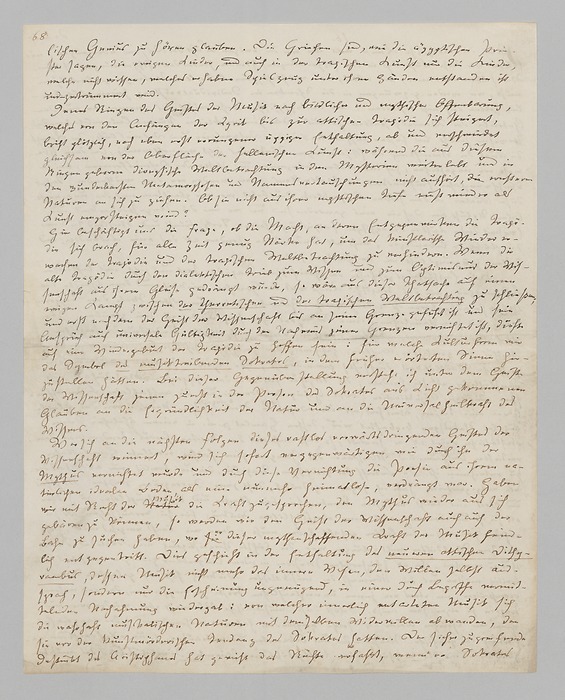 68
lischen Genius zu hören glauben. Die Griechen sind, wie die ägyptischen Prie-
ster sagen, die ewigen Kinder, und auch in der tragischen Kunst nur die Kinder,
welche nicht wissen, welches erhabene Spielzeug unter ihren Händen entstanden ist
und zertrümmert wird.
Jenes Ringen des Geistes der Musik nach bildlicher und mythischer Offenbarung,
welches von den Anfängen der Lyrik bis zur attischen Tragödie sich steigert,
bricht plötzlich, nach eben erst errungener üppiger Entfaltung, ab und verschwindet
gleichsam von der Oberfläche der hellenischen Kunst: während die aus diesem
Ringen geborene dionysische Weltbetrachtung in den Mysterien weiterlebt und in
den wunderbarsten Metamorphosen und nicht aufhört,
Naturen an sich zu ziehen. Ob sie nicht aus ihrer mystischen Tiefe einst wieder als
Kunst emporsteigen wird?
Hier beschäftigt uns die Frage, ob die Macht, an deren Entgegenwirken die Tragö-
die sich brach, für alle Zeit genug Stärke hat, um das künstlerische Wiederer-
wachen der Tragödie und der tragischen Weltbetrachtung zu verhindern. Wenn die
alte Tragödie durch den dialektischen Trieb zum Wissen und zum Optimismus der Wis-
senschaft aus ihrem Gleise gedrängt wurde, so wäre aus dieser Thatsache auf einen
ewigen Kampf zwischen der theoretischen und der tragischen Weltbetrachtung zu schließen,
und erst nachdem der Geist der Wissenschaft bis an seine Grenze geführt ist und sein
Anspruch auf universale Gültigkeit durch den Nachweis jener Grenzen vernichtet ist, dürfte
auf eine Wiedergeburt der Tragödie zu hoffen sein: für welche Culturform wir
das Symbol des musiktreibenden Sokrates, in dem früher erörterten Sinne hin-
zustellen hätten. Bei dieser Gegenüberstellung verstehe ich unter dem Geiste
der Wissenschaft jenen zuerst in der Person des Sokrates ans Licht gekommenen
Glauben an die Ergründlichkeit der Natur und an die Universalheilkraft des
Wissens.
Wer sich an die nächsten Folgen dieses rastlos vorwärtsdringenden Geistes der
Wissenschaft erinnert, wird sich sofort vergegenwärtigen wie durch ihn der
Mythus vernichtet wurde und durch diese Vernichtung die Poesie aus ihrem na-
türlichen idealen Boden als eine nunmehr heimatlose, verdrängt war. Haben
wir mit Recht der Musik die Kraft zugesprochen, den Mythus wieder aus sich
gebären zu können, so werden wir den Geist der Wissenschaft auch auf der
Bahn zu suchen haben, wo er dieser mythenschaffenden Kraft der Musik feind-
lich entgegentritt. Dies geschieht in der Entfaltung des neueren attischen Dithy-
rambus, dessen Musik nicht mehr das innere Wesen, den Willen selbst aus-
sprach, sondern nur die Erscheinung ungenügend, in einer durch Begriffe vermit-
telten Nachahmung wiedergab: von welcher innerlich entarteten Musik sich
die wahrhaft musikalischen Naturen mit demselben Widerwillen abwandten, den
sie vor der kunstmörderischen Tendenz des Sokrates hatten. Der sicher zugreifende
Instinkt des Aristophanes hat gewiß das Rechte erfaßt, wenn er Sokrates